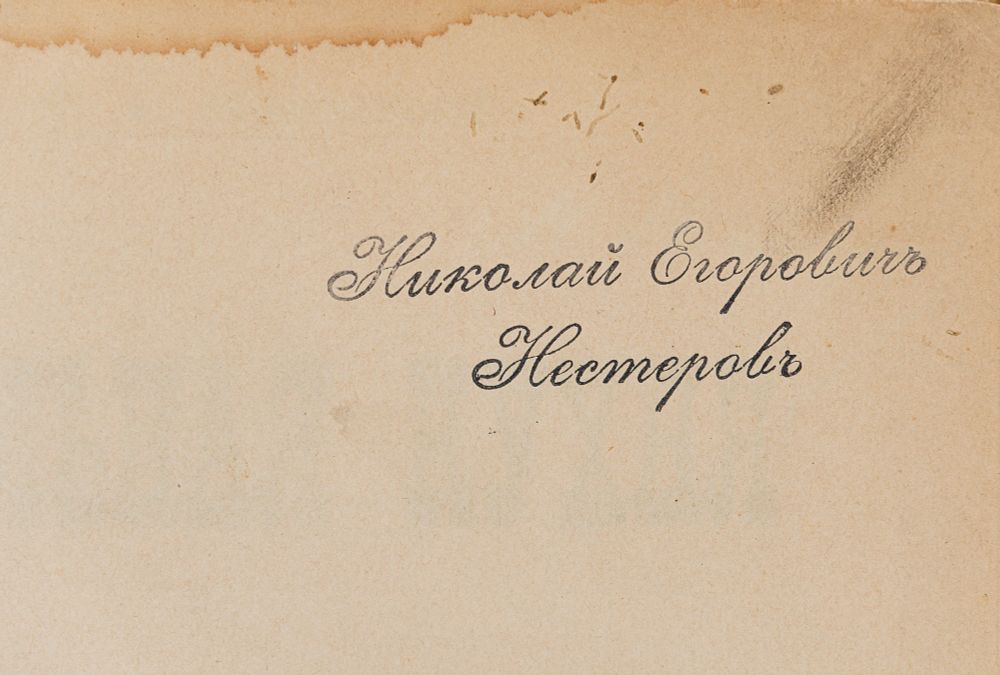 Николай Егоровичъ
Нестеровъ